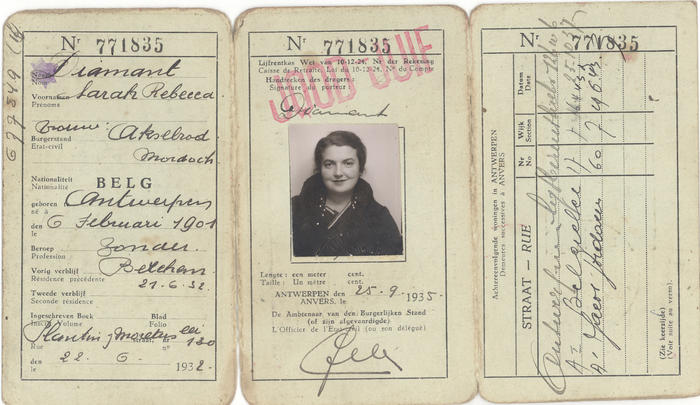 Nr 771835
Naam Diamant
Nom
Voornamen Sarah Rebecca
Prénoms
Burgerstand Akselrod
Etat-civil Mordoch
Nationaliteit BELG
Nationalité
geboren Antwerpen
né à
den 6 Februari 1901
le
Beroep Zonder
Profession
Vorig verblijf Berchem
Résidence précédente 21.6.32.
Tweede verblijf
Seconde résidence
Ingeschreven Boek Blad
Inscrit Volume Folio
Plantin Moretus lei
Straat nr 130
Rue
den 22. 6. 1932.
le
677349
Nr 771835
Lijfrentkas Wet van 10-12-24, Nr der Rekening
Caisse de Retraite, Loi du 10-12-24, No du Compte
JOOD-JUIF
Handteeken des dragers:
Signature du porteur:
Diamant
Lengte: een meter cent.
Taille: Un mètre cent.
ANTWERPEN den 25.9.1935.
ANVERS, le
De Ambtenaar van den Burgerlijken Stand
(of zijn afgevaardigde)
L'Officier de l'Etat civil (ou son délégué)
Nr 771835
Achtereenvolgende woningen in ANTWERPEN
Demeures successives à ANVERS
STRAAT — RUE
Nr
No
Wijk
Section
Datum
Date
A1 Belgiëlei
A1 Jacob Jordaens 60 7
(Zie keerzijde)
(Voir suite au verso)